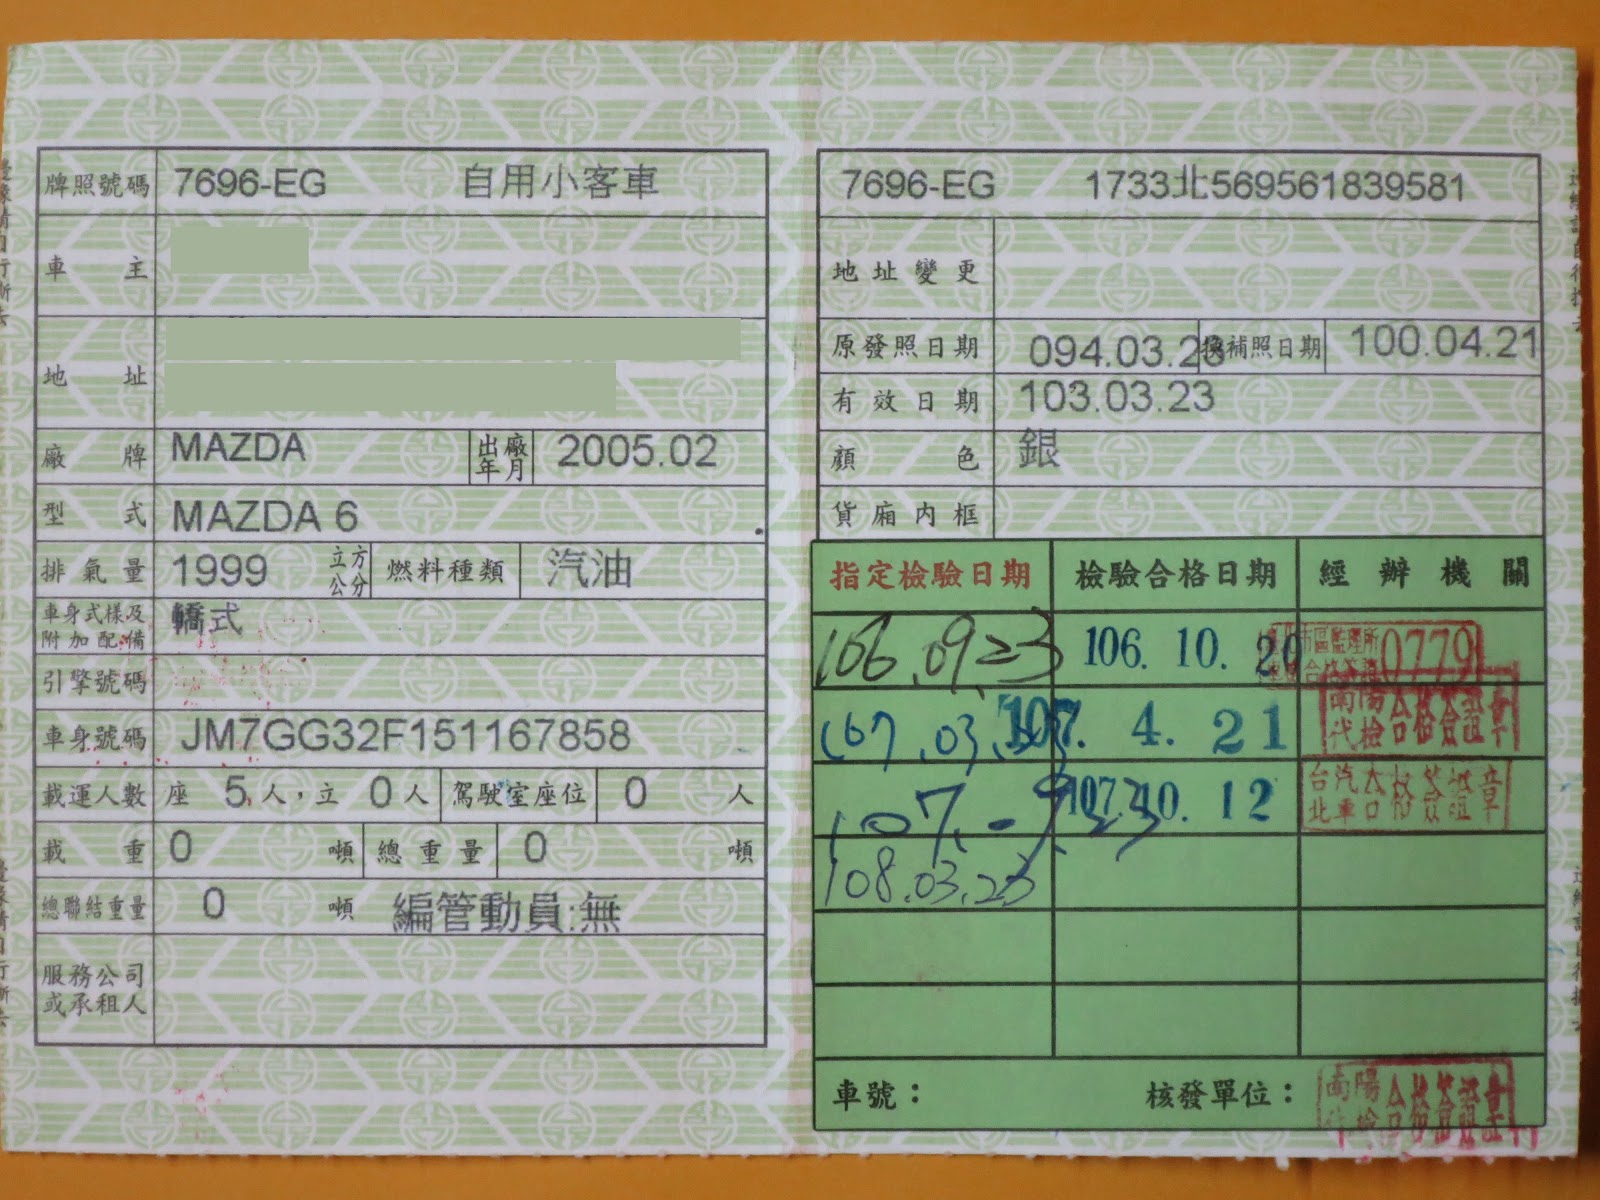 牌照號碼 7696-EG 自用小客車
車主
地址
廠牌 MAZDA 出廠年月 2005.02
型式 MAZDA 6
排氣量 1999 立方公分 燃料種類 汽油
車身式樣及附加配備 轎式
引擎號碼
車身號碼 JM7GG32F151167858
載運人數 座 5 人，立 0 人 駕駛室座位 0 人
載重 0 噸 總重量 0 噸
總聯結重量 0 噸 編管動員:無
服務公司或承租人
7696-EG 1733北569561839581
地址變更
原發照日期 094.03.23 換補照日期 100.04.21
有效日期 103.03.23
顏色 銀
貨廂內框
指定檢驗日期 檢驗合格日期 經辦機關
106.09.23 106. 10. 20 0779
107.03.23 107. 4. 21 南陽代檢
107.09.23 107. 10. 12 台北汽車
108.03.23
車號： 核發單位： 南陽